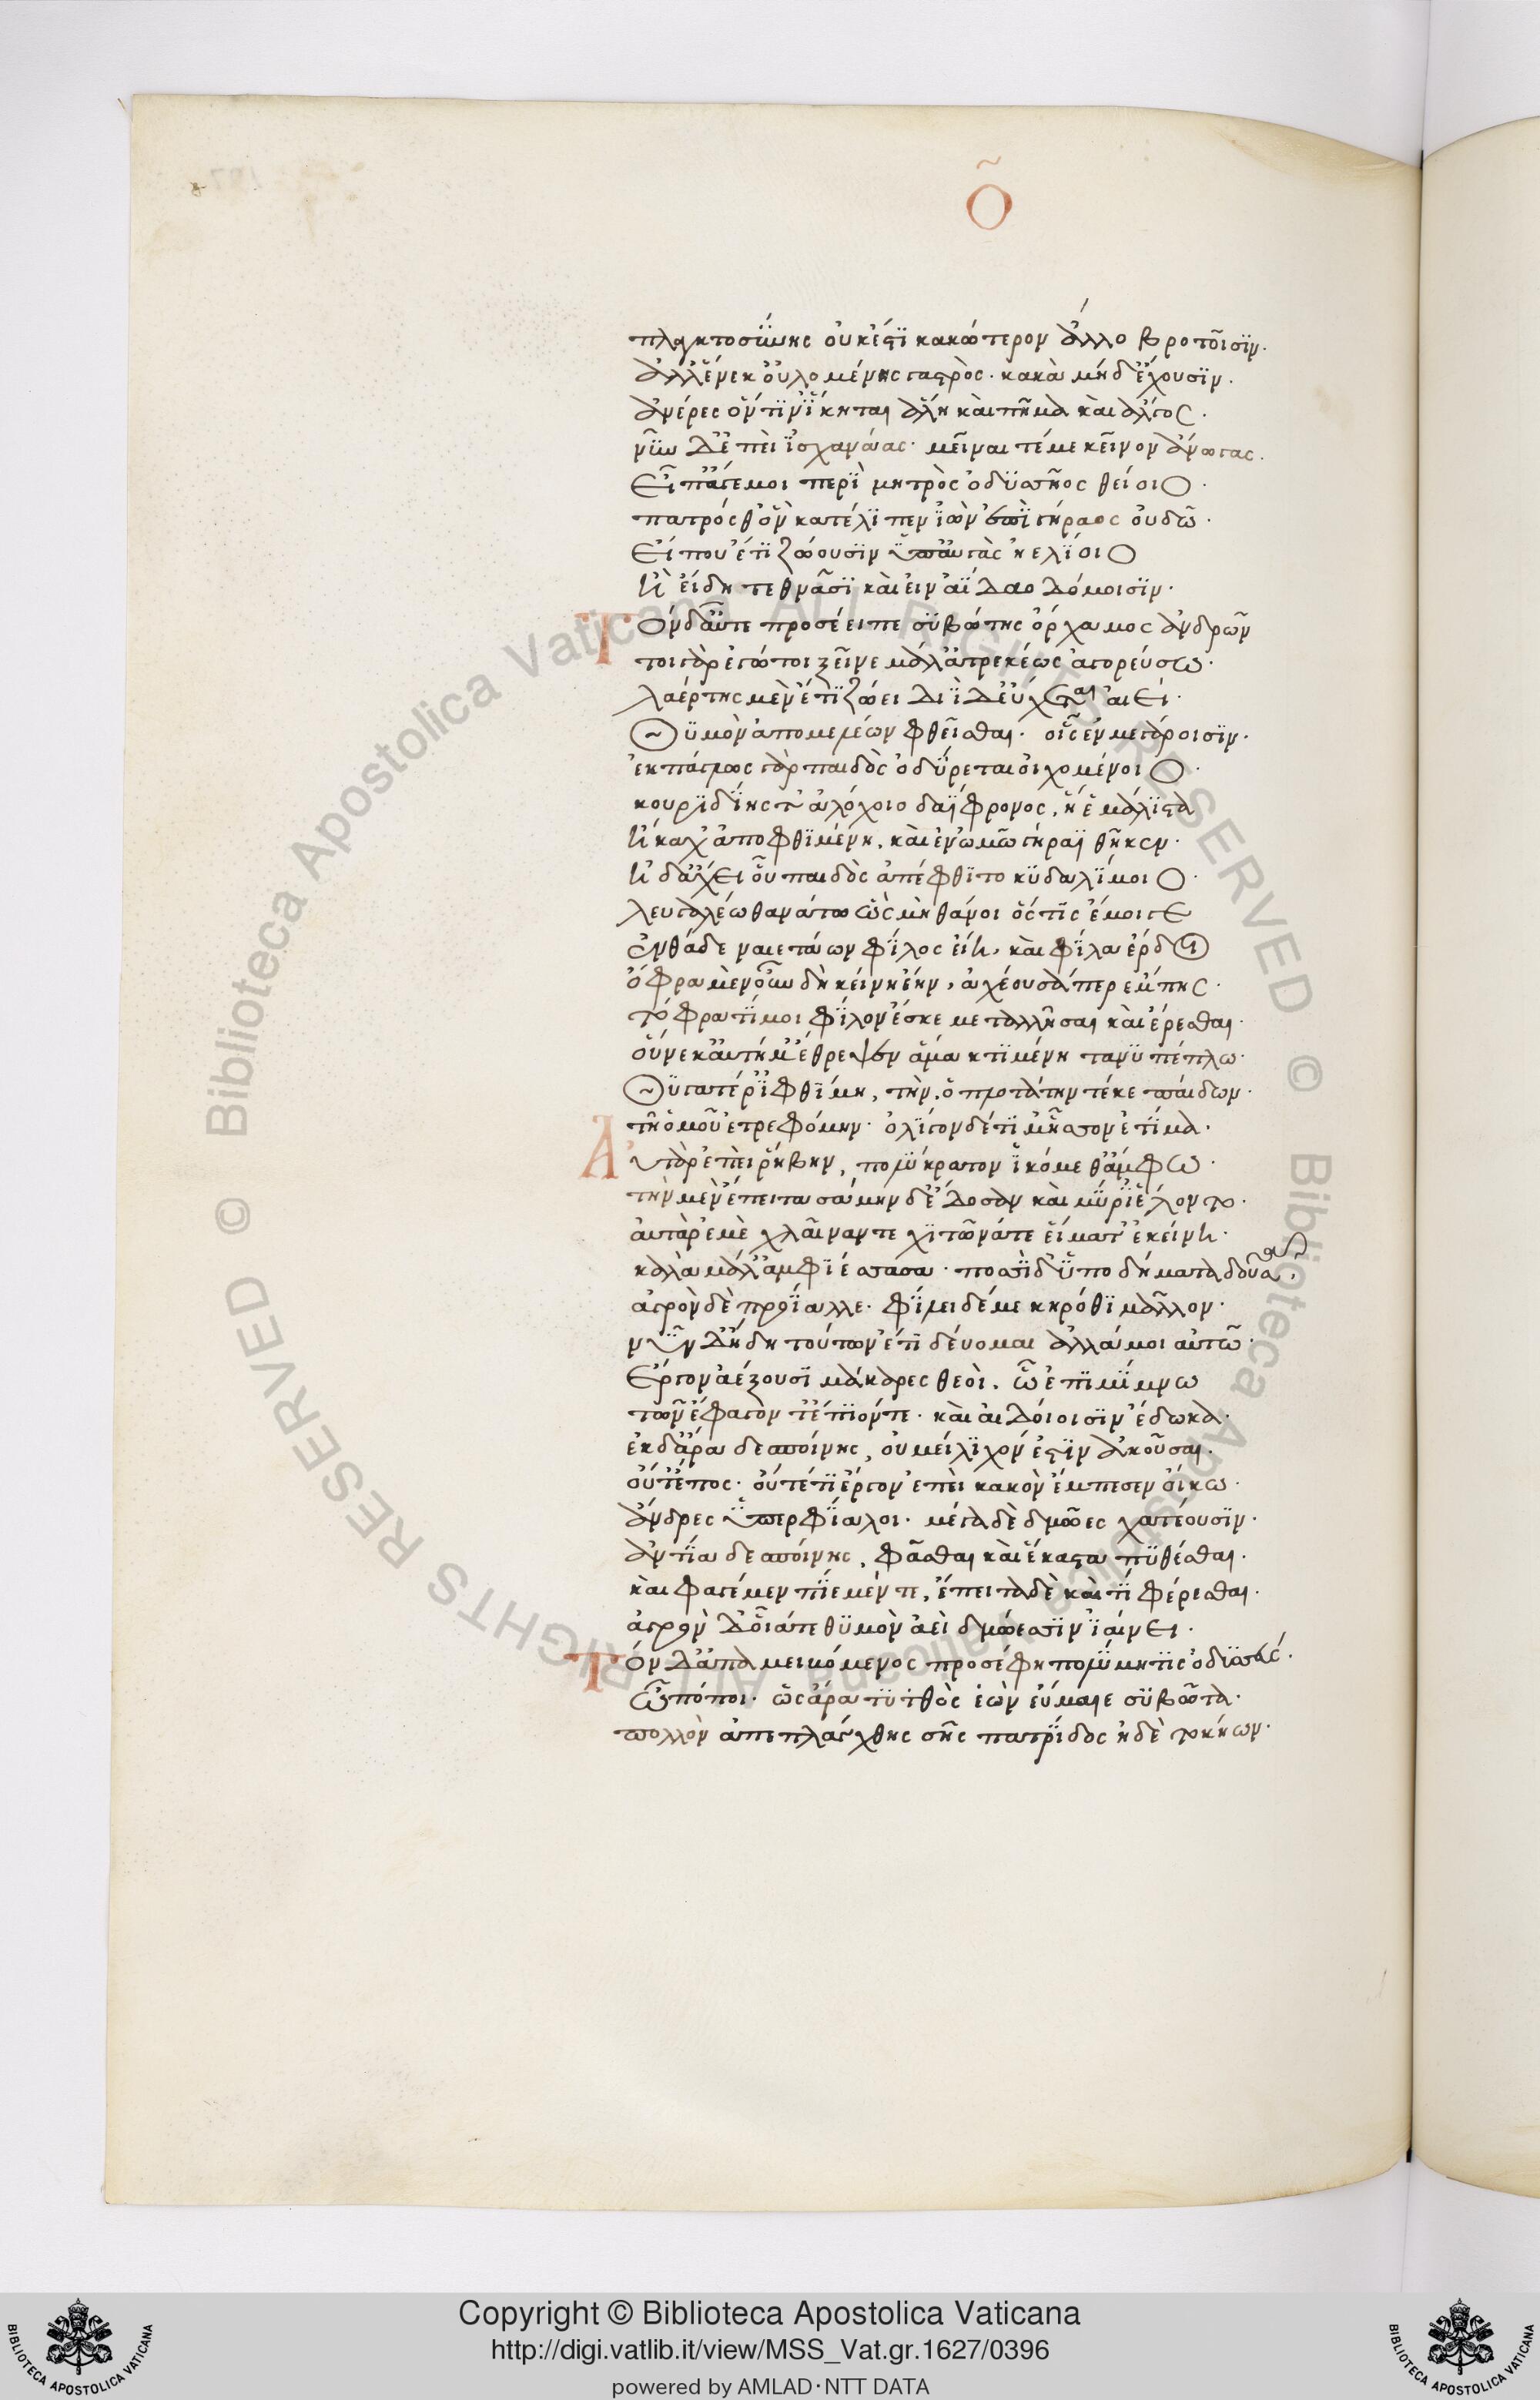 Ο̃
πλαγκτοσύνης οὐκέστι κακώτερον ἄλλο βροτοῖσϊν·
ἀλλ' ἕνεκ' οὐλομένης γαστρὸς· κακὰ μήδ' ἔχουσϊν·
ἀνέρες ὅν τιν' ἵκηται ἄλη καὶ πῆμα καὶ ἄλγος·
νῦν δ' ἐπεὶ ἰσχανάας· μεῖναι τέ με κεῖνον ἄνωγας·
εἴπ' ἄγε μοι περὶ μητρὸς ὀδυσσῆος θείοιο·
πατρός θ' ὃν κατέλιπεν ἰὼν ἐπὶ γήραος οὐδῶ·
εἴ που ἔτι ζώουσϊν ὑπ' αὐγὰς ἠελίοιο
ἢ εἴδη τεθνᾶσϊ καὶ εἰν ἀΐδαο δόμοισϊν·
Τόνδ' αὖτε προσέειπε συβώτης ὄρχαμος ἀνδρῶν
τοιγὰρ ἐγώ τοι ξεῖνε μάλ' ἀτρεκέως ἀγορεύσω·
λαέρτης μὲν ἔτι ζώει διῒ δ' εὔχεται αἰεί·
θυμὸν ἀπομελέων φθεῖσθαι· οἷς ἐν μεγάροισϊν·
ἐκπάγλως γὰρ παιδὸς ὀδύρεται οἰχομένοιο·
κουριδίης τ' ἀλόχοιο δαΐφρονος, ἥ ἑ μάλιστα
ἤκαχ' ἀποφθιμένη, καὶ ἐν ὠμῶ γήραϊ θῆκεν·
ἡ δ' ἄχεϊ οὗ παιδὸς ἀπέφθιτο κυδαλίμοιο·
λευγαλέω θανάτω ὡς μὴ θάνοι ὅς τις ἔμοιγε
ἐνθάδε ναιετάων φίλος εἴη, καὶ φίλα ἔρδοι
ὄφρα μὲν οὖν δὴ κείνη ἔην, ἀχέουσά περ ἔμπης·
τόφρα τί μοι φίλον ἔσκε μεταλλῆσαι καὶ ἔρεσθαι·
οὕνεκ' αὐτή μ' ἔθρεψεν ἅμα κτιμένη τανυπέπλω·
θυγατέρ' ἰφθίμη, τὴν ὁπλοτάτην τέκε παίδων·
τῆ ὁμοῦ ἐτρεφόμην· ὀλίγον δέ τι μ' ἧσσον ἐτίμα·
Αὐτὰρ ἐπεί ῥ' ἥβην, πολυήρατον ἱκόμεθ' ἄμφω·
τὴν μὲν ἔπειτα σάμηνδ' ἔδοσαν καὶ μυρί' ἕλοντο·
αὐτὰρ ἐμὲ χλαῖναν τε χιτῶνά τε εἵματ' ἐκείνη·
καλὰ μάλ' ἀμφιέσασα· ποσϊ δ' ὑποδήματα δοῦσα,
ἀγρὸν δὲ προΐαλλε· φίλει δέ με κηρόθι μᾶλλον·
νῦν δ' ἤδη τούτων ἔτι δεύομαι ἀλλά μοι αὐτῶ·
ἔργον ἀέξουσϊ μάκαρες θεοὶ, ὧ ἐπιμίμνω
τῶν ἔφαγόν τ' ἔπιόν τε· καὶ αἰδοίοισϊν ἔδωκα·
ἐκ δ' ἄρα δεσποίνης, οὐ μείλιχόν ἐστϊν ἀκοῦσαι·
οὔτ' ἔπος· οὔτέ τι ἔργον ἐπεὶ κακὸν ἔμπεσεν οἴκω·
ἄνδρες ὑπερφίαλοι· μέγα δὲ δμῶες χατέουσϊν·
ἀντία δεσποίνης, φᾶσθαι καὶ ἕκαστα πυθέσθαι·
καὶ φαγέμεν πιέμέν τε, ἔπειτα δὲ καί τι φέρεσθαι·
ἀγρὸν δ' οἷά τε θυμὸν ἀεὶ δμώεσσϊν ἰαίνει·
Τὸν δ' ἀπαμειβόμενος προσέφη πολύμητις ὀδυσσεύς·
ὢ πόποι· ὡς ἄρα τυτθὸς ἐὼν εὔμαιε συβῶτα·
πολλὸν ἀπεπλάγχθης σῆς πατρίδος ἠδὲ τοκήων·
Copyright © Biblioteca Apostolica Vaticana
http://digi.vatlib.it/view/MSS_Vat.gr.1627/0396
powered by AMLAD·NTT DATA